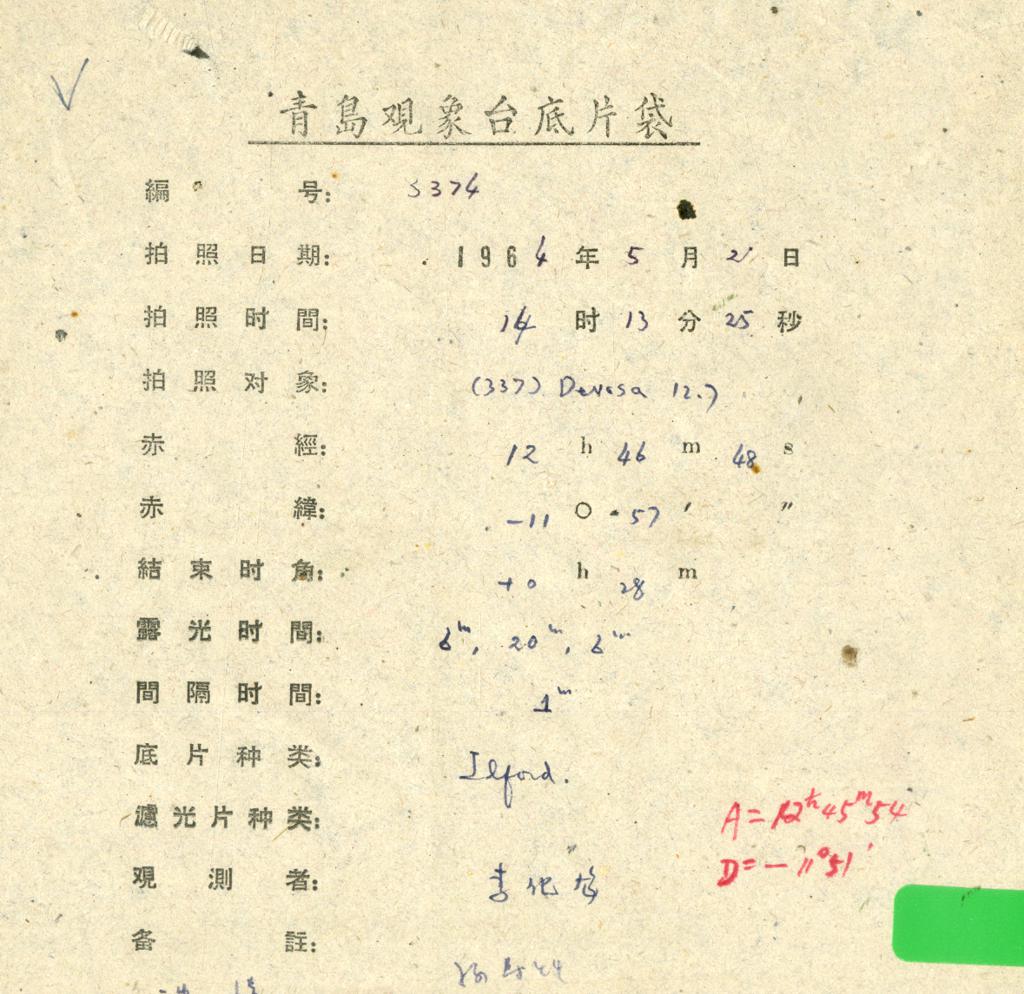 青島观象台底片袋
編 号: S374
拍照日期: 1964年5月2日
拍照时間: 14时13分25秒
拍照对象: (337) Devosa 12.7
赤 經: 12 h 46 m 48 s
赤 緯: -11 ○ 57 ′ ″
結束时角: +0 h 28 m
露光时間: 6m, 20m, 6m
間隔时間: 1m
底片种类: Ilford.
濾光片种类:
A=12h45m54
D=-11°51′
观測者: 李
备 註: